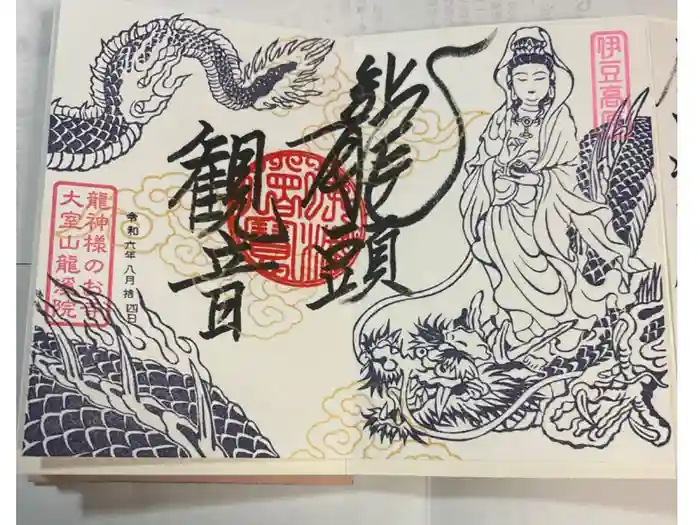 伊豆高原
龍頭
観音
令和六年八月拾四日
龍神様のお寺
大室山龍渓院